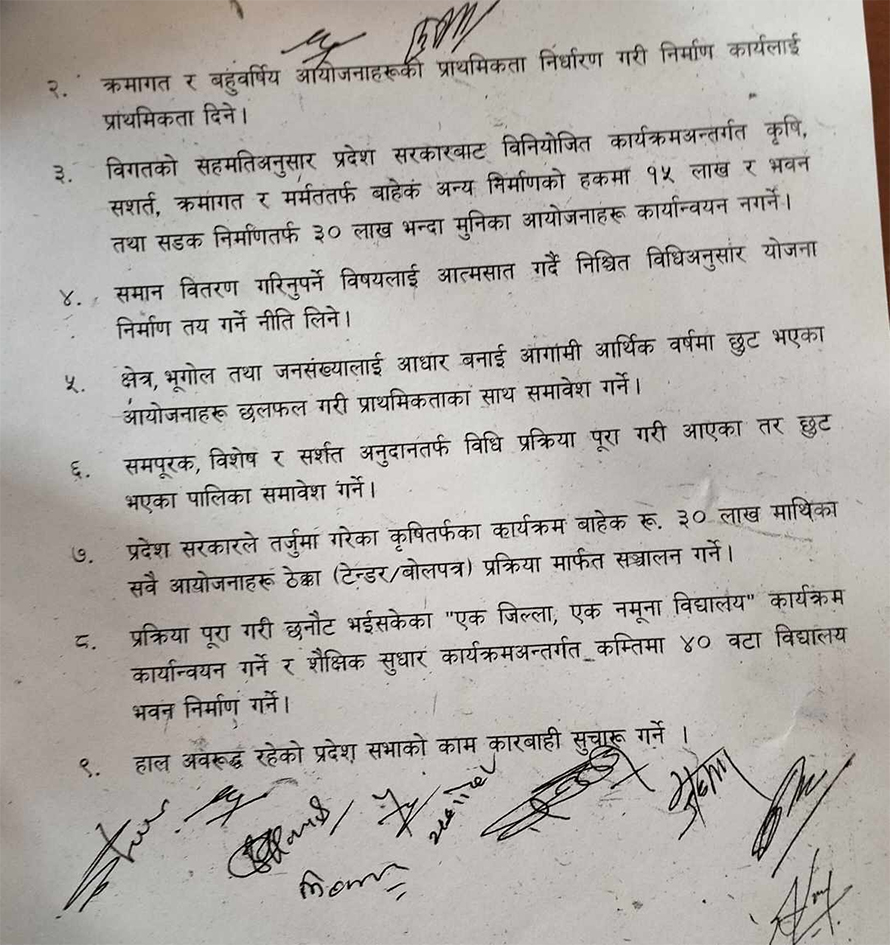 २. क्रमागत र बहुवर्षिय आयोजनाहरूको प्राथमिकता निर्धारण गरी निर्माण कार्यलाई
प्राथमिकता दिने।
३. विगतको सहमतिअनुसार प्रदेश सरकारबाट विनियोजित कार्यक्रमअन्तर्गत कृषि,
सशर्त, क्रमागत र मर्मततर्फ बाहेक अन्य निर्माणको हकमा १५ लाख र भवन
तथा सडक निर्माणतर्फ ३० लाख भन्दा मुनिका आयोजनाहरू कार्यान्वयन नगर्ने।
४. समान वितरण गरिनुपर्ने विषयलाई आत्मसात गर्दै निश्चित विधिअनुसार योजना
निर्माण तय गर्ने नीति लिने।
५. क्षेत्र, भूगोल तथा जनसंख्यालाई आधार बनाई आगामी आर्थिक वर्षमा छुट भएका
आयोजनाहरू छलफल गरी प्राथमिकताका साथ समावेश गर्ने।
६. समपूरक, विशेष र सर्शत अनुदानतर्फ विधि प्रक्रिया पूरा गरी आएका तर छुट
भएका पालिका समावेश गर्ने।
७. प्रदेश सरकारले तर्जुमा गरेका कृषितर्फका कार्यक्रम बाहेक रू. ३० लाख माथिका
सवै आयोजनाहरू ठेक्का (टेन्डर/बोलपत्र) प्रक्रिया मार्फत सञ्चालन गर्ने।
८. प्रक्रिया पूरा गरी छनौट भईसकेका "एक जिल्ला, एक नमूना विद्यालय" कार्यक्रम
कार्यान्वयन गर्ने र शैक्षिक सुधार कार्यक्रमअन्तर्गत कम्तिमा ४० वटा विद्यालय
भवन निर्माण गर्ने।
९. हाल अवरूद्ध रहेको प्रदेश सभाको काम कारबाही सुचारू गर्ने ।